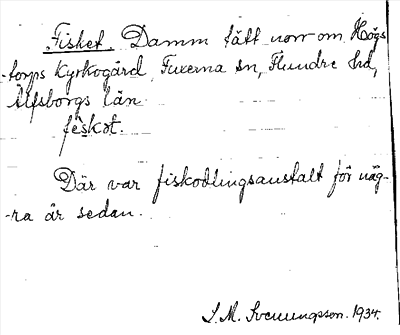 Fisket. Damm tätt norr om Högs-
-torps kyrkogård, Fuxerna sn, Flundre hd,
Älfsborgs län
fèskət.
Där var fiskodlingsanstalt för någ-
-ra år sedan.
S. M. Svenungsson. 1934.